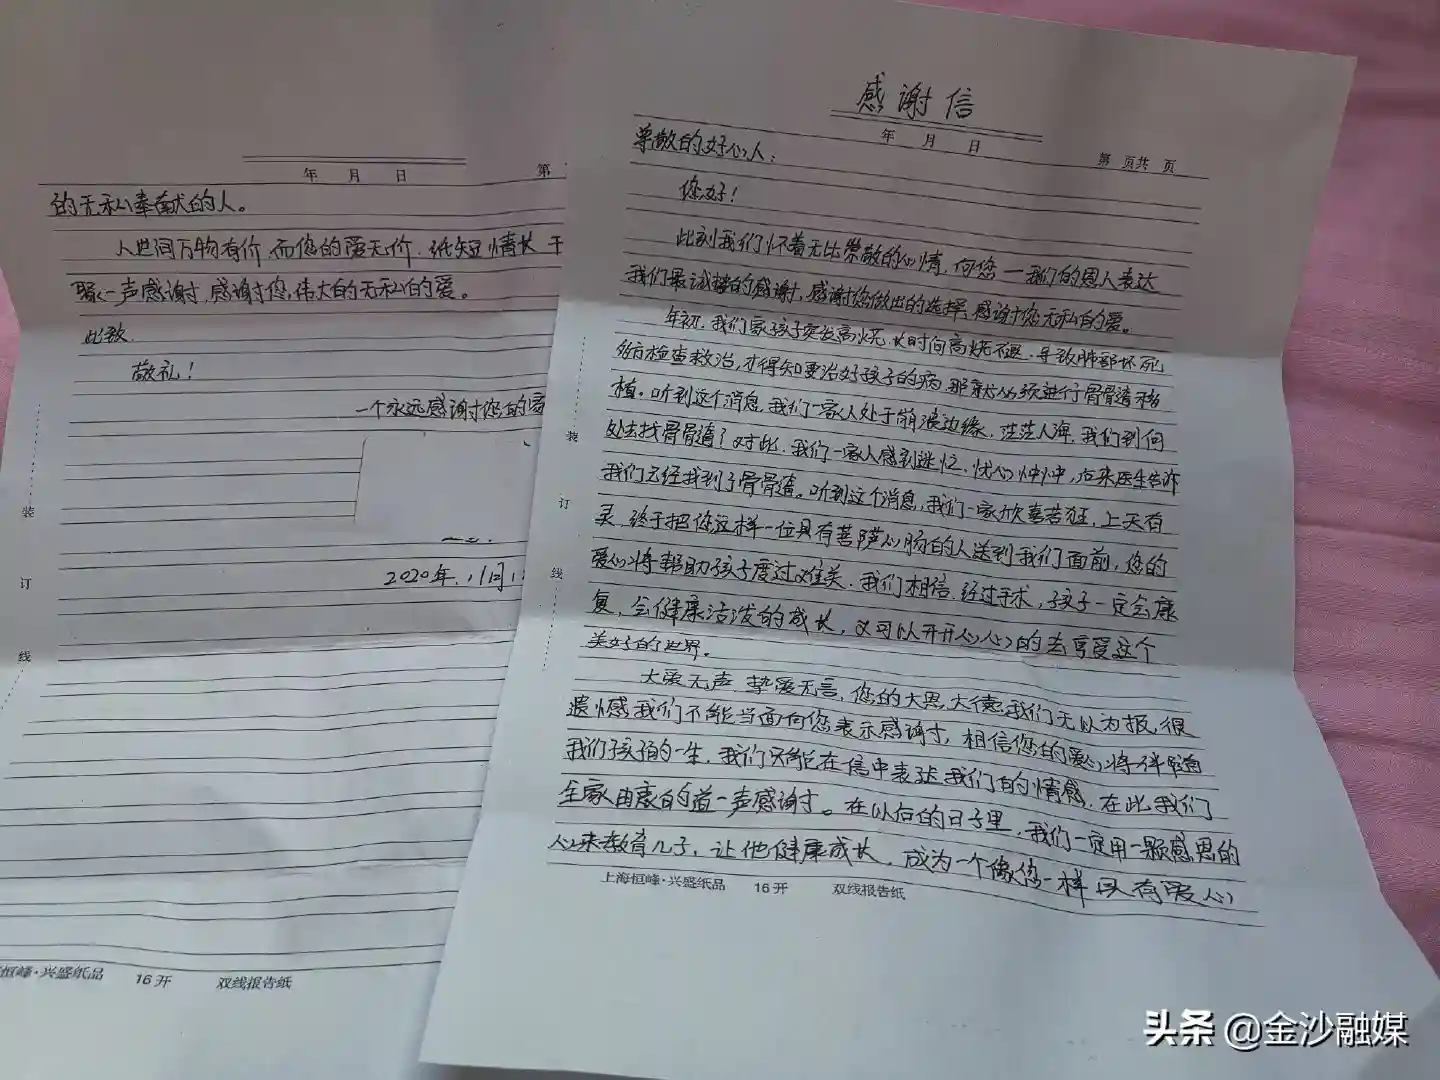 感谢信
年 月 日
第 页共 页
尊敬的好心人：
您好！
此刻我们怀着无比崇敬的心情，向您一我们的恩人表达
我们最诚挚的感谢，感谢您做出的选择，感谢您无私的爱。
年初，我们家孩子突发高烧，长时间高烧不退，导致肺部坏死
多方检查救治，才得知要治好孩子的病，那就必须进行骨骨髓移
植。听到这个消息，我们一家人处于崩溃边缘，茫茫人海，我们到何
处去找骨骨髓？对此，我们一家人感到迷茫，忧心忡忡，后来医生告诉
我们已经找到了骨骨髓。听到这个消息，我们一家欣喜若狂，上天有
灵，终于把您这样一位具有菩萨心肠的人送到我们面前，您的
爱心将帮助孩子度过难关，我们相信，经过手术，孩子一定会康
复，会健康活泼的成长，又可以开开心心的去享受这个
美好的世界。
大爱无声，挚爱无言，您的大恩大德我们无以为报，很
遗憾我们不能当面向您表示感谢，相信您的爱心将伴随
我们孩子的一生，我们只能在信中表达我们的情感，在此我们
全家由衷的道一声感谢。在以后的日子里，我们一定用一颗感恩的
心来教育儿子，让他健康成长，成为一个像您一样具有爱心
上海恒峰·兴盛纸品 16开 双线报告纸
装
订
线
年 月 日
第
的无私奉献的人。
人世间万物有价，而您的爱无价，纸短情长，千
声感谢，感谢您伟大的无私的爱。
此致
敬礼！
一个永远感谢您的
2020年
装
订
线
恒峰·兴盛纸品 16开 双线报告纸
头条 @金沙融媒